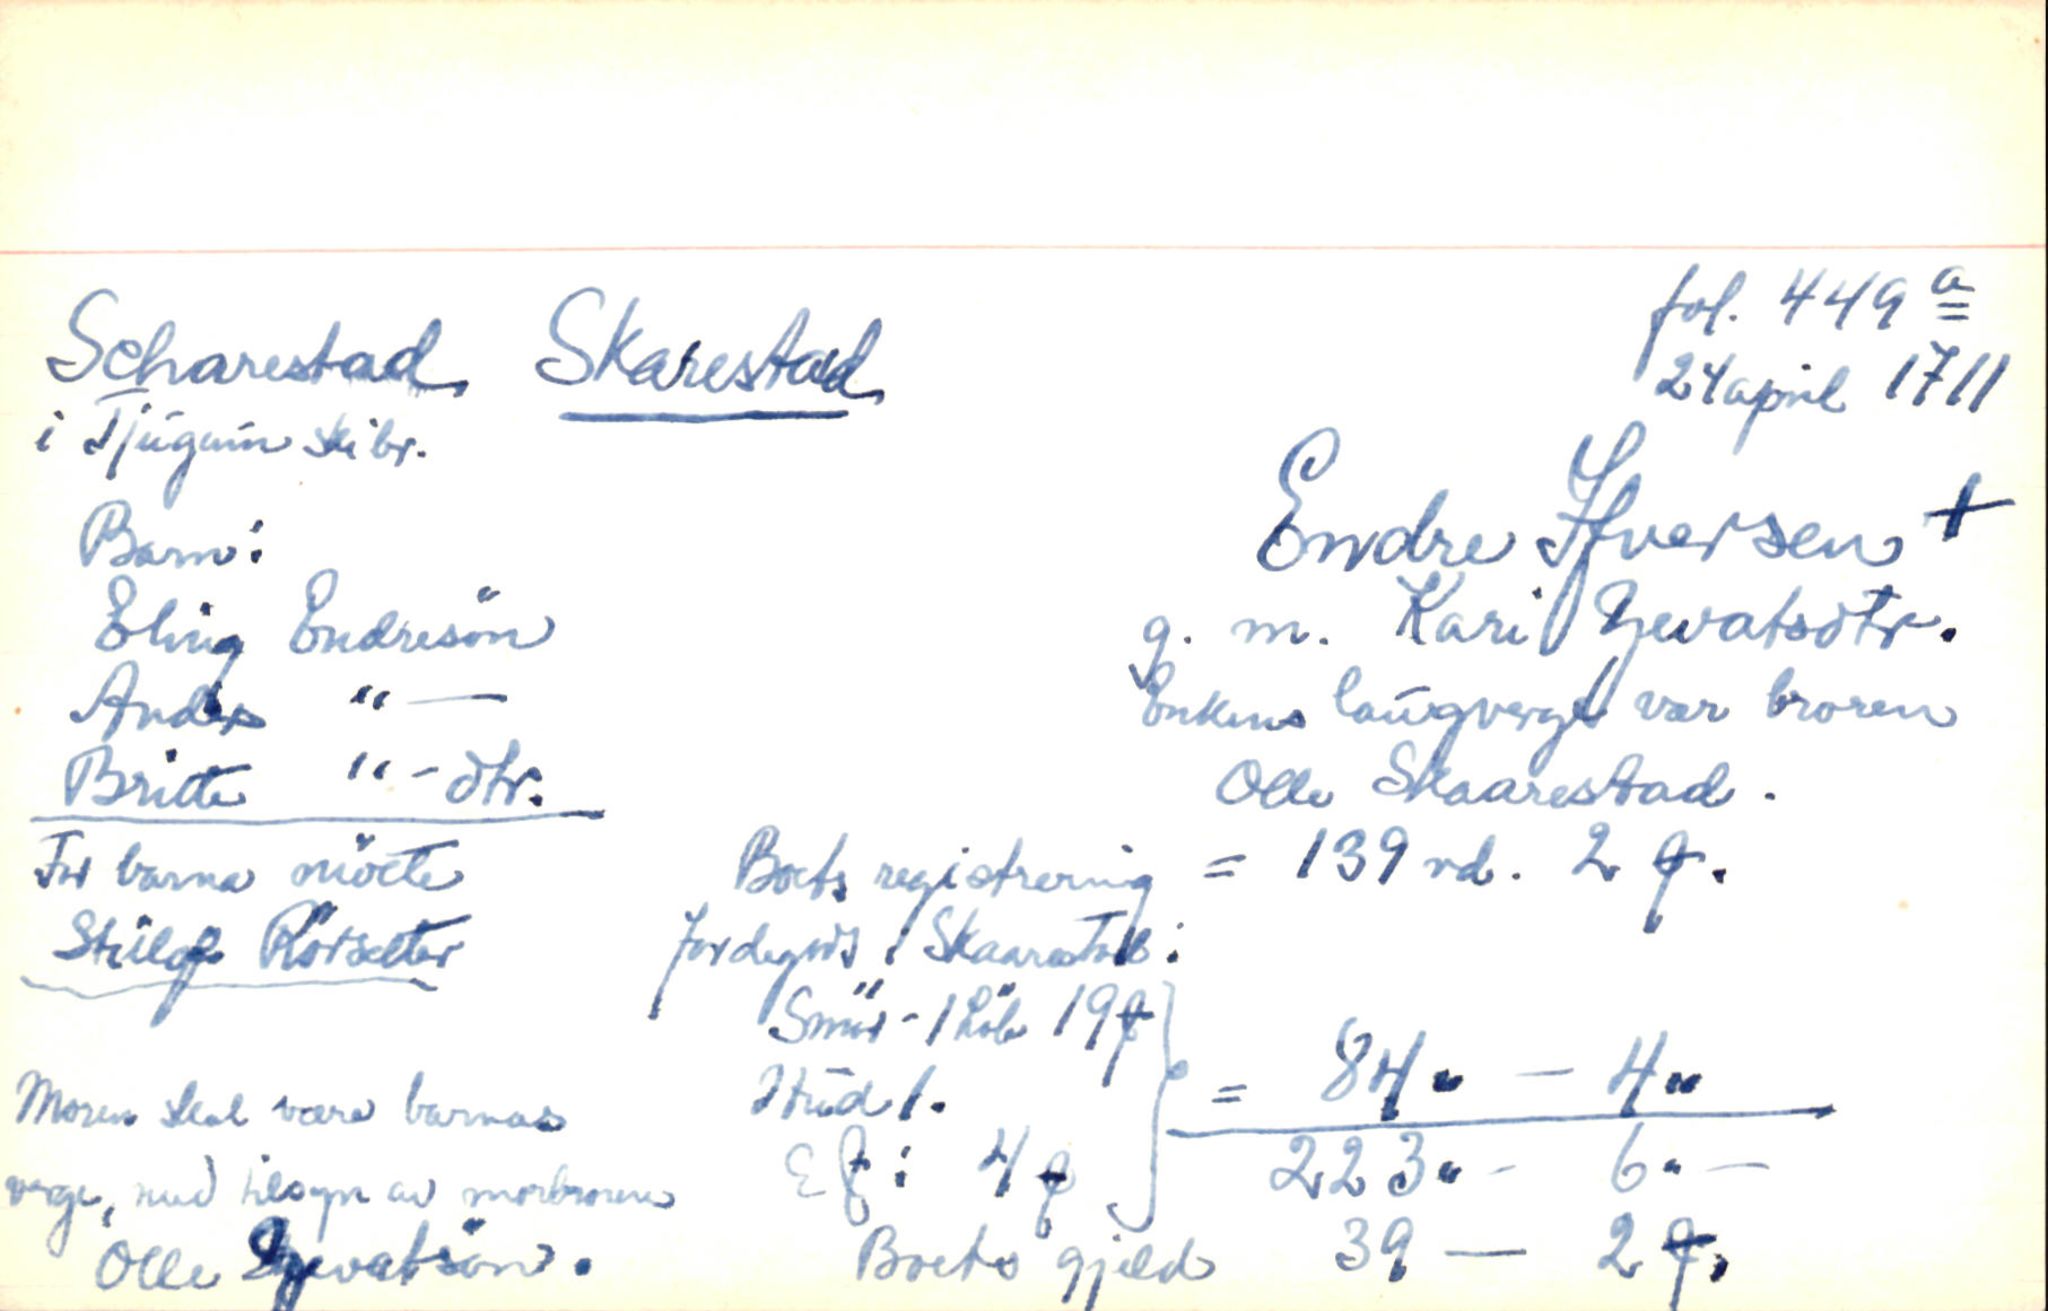 fol. 449 a
Scharestad Skarestad
24 april 1711
i Tjugum skibr.
Endre Ifversen +
Barn:
g. m. Kari Zevatsdtr.
Eling Endresön
Enkens laugverge var broren
Anders " —
Olle Skaarestad.
Britte " - dtr.
For barna mötte
Boets registrering = 139 rd. 2 ƒ.
Stüelf Rörsetter
Jordegods i Skaarestad:
Smör - 1 Löb 19 ƒ
Hud 1. = 84 " — 4 "
Moren skal være barnas
223 " - 6 " —
verge, med tilsyn av morbroren
: 4 ƒ
Olle Zevatsön.
Boets gjeld 39 — 2 ƒ.